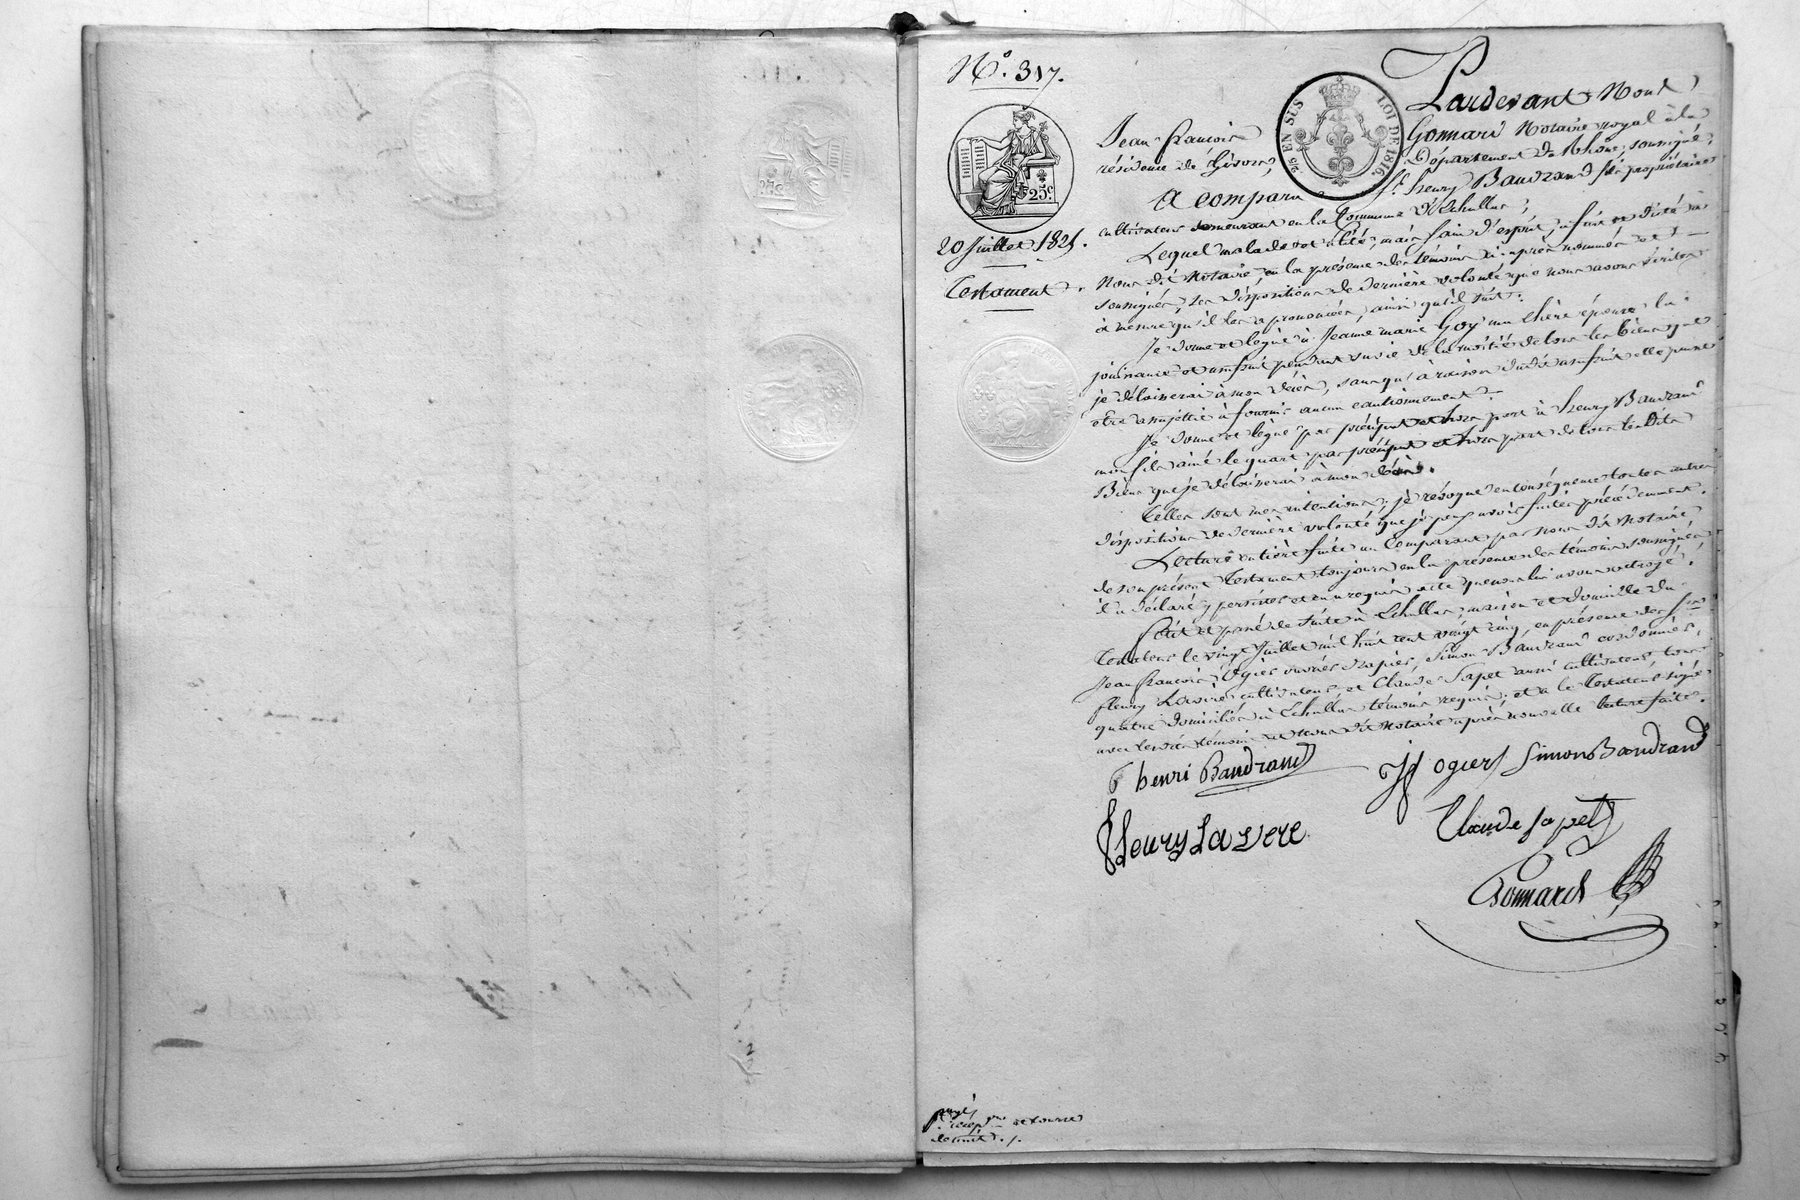 N.o 317.
25c
20 Juillet 1825.
Testament.
EN SUS
LOI DE 1816.
Pardevant Nous
Jean François Gonnard Notaire royal à la
résidence de Givors, Département du Rhône, soussigné;
A comparu Sr. fleury Baudrand fils propriétaire
cultivateur demeurant en la Commune d'Echallas;
Lequel malade et alité, mais sain d'esprit, a fait et dicté à
Nous dit Notaire, en la présence des témoins ci-après nommés et
soussignés, ses dispositions de dernière volonté que nous avons écrites
à mesure qu'il les a prononcées, ainsi qu'il suit:
Je donne et lègue à Jeanne marie Goy ma chère épouse la
jouissance et usufruit pendant sa vie de la moitié de tous les biens que
je délaisserai à mon décès, sans qu'à raison dudit usufruit elle puisse
être assujettie à fournir aucun cautionnement.
Je donne et lègue par préciput et hors part à fleury Baudrand
mon fils aîné le quart par préciput et hors part de tous lesdits
Biens que je délaisserai à mon décès.
Telles sont mes intentions; je révoque en conséquence toutes autres
dispositions de dernière volonté que je peux avoir faites précédemment.
Lecture entière faite au Comparant par nous dit Notaire
de son présent Testament toujours en la présence des témoins soussignés
il a déclaré y persister et en a requis acte que nous lui avons octroyé.
Fait et passé de suite à Echallas, maison et domicile du
Testateur le vingt Juillet mil huit cent vingt cinq, en présence des Srs.
Jean François Ogier ouvrier drapier, Simon Baudrand cordonnier,
fleury Lavere cultivateur et Claude Sapet aussi cultivateur, tous
quatre domiciliés à Echallas témoins requis; et a le Testateur signé
avec lesdits témoins et nous dit Notaire après nouvelle lecture faite.
henri Baudrand
JF ogier Simon Baudrand
fleury Lavere
Claude Sapet
Gonnard